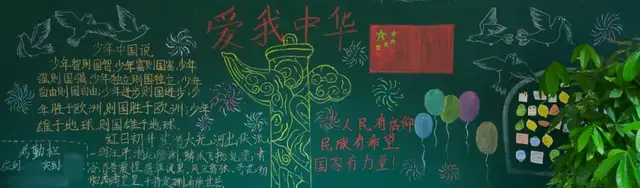 爱我中华
少年中国说
少年智则国智,少年富则国富,少年
强则国强,少年独立则国独立,少年
自由则国自由,少年进步则国进步,少
年胜于欧洲,则国胜于欧洲,少年
雄于地球,则国雄于地球.
红日初升 其道大光 河出伏流
一泻汪洋
人民有信仰
民族有希望
国家有力量!
考勤栏
应到 实到